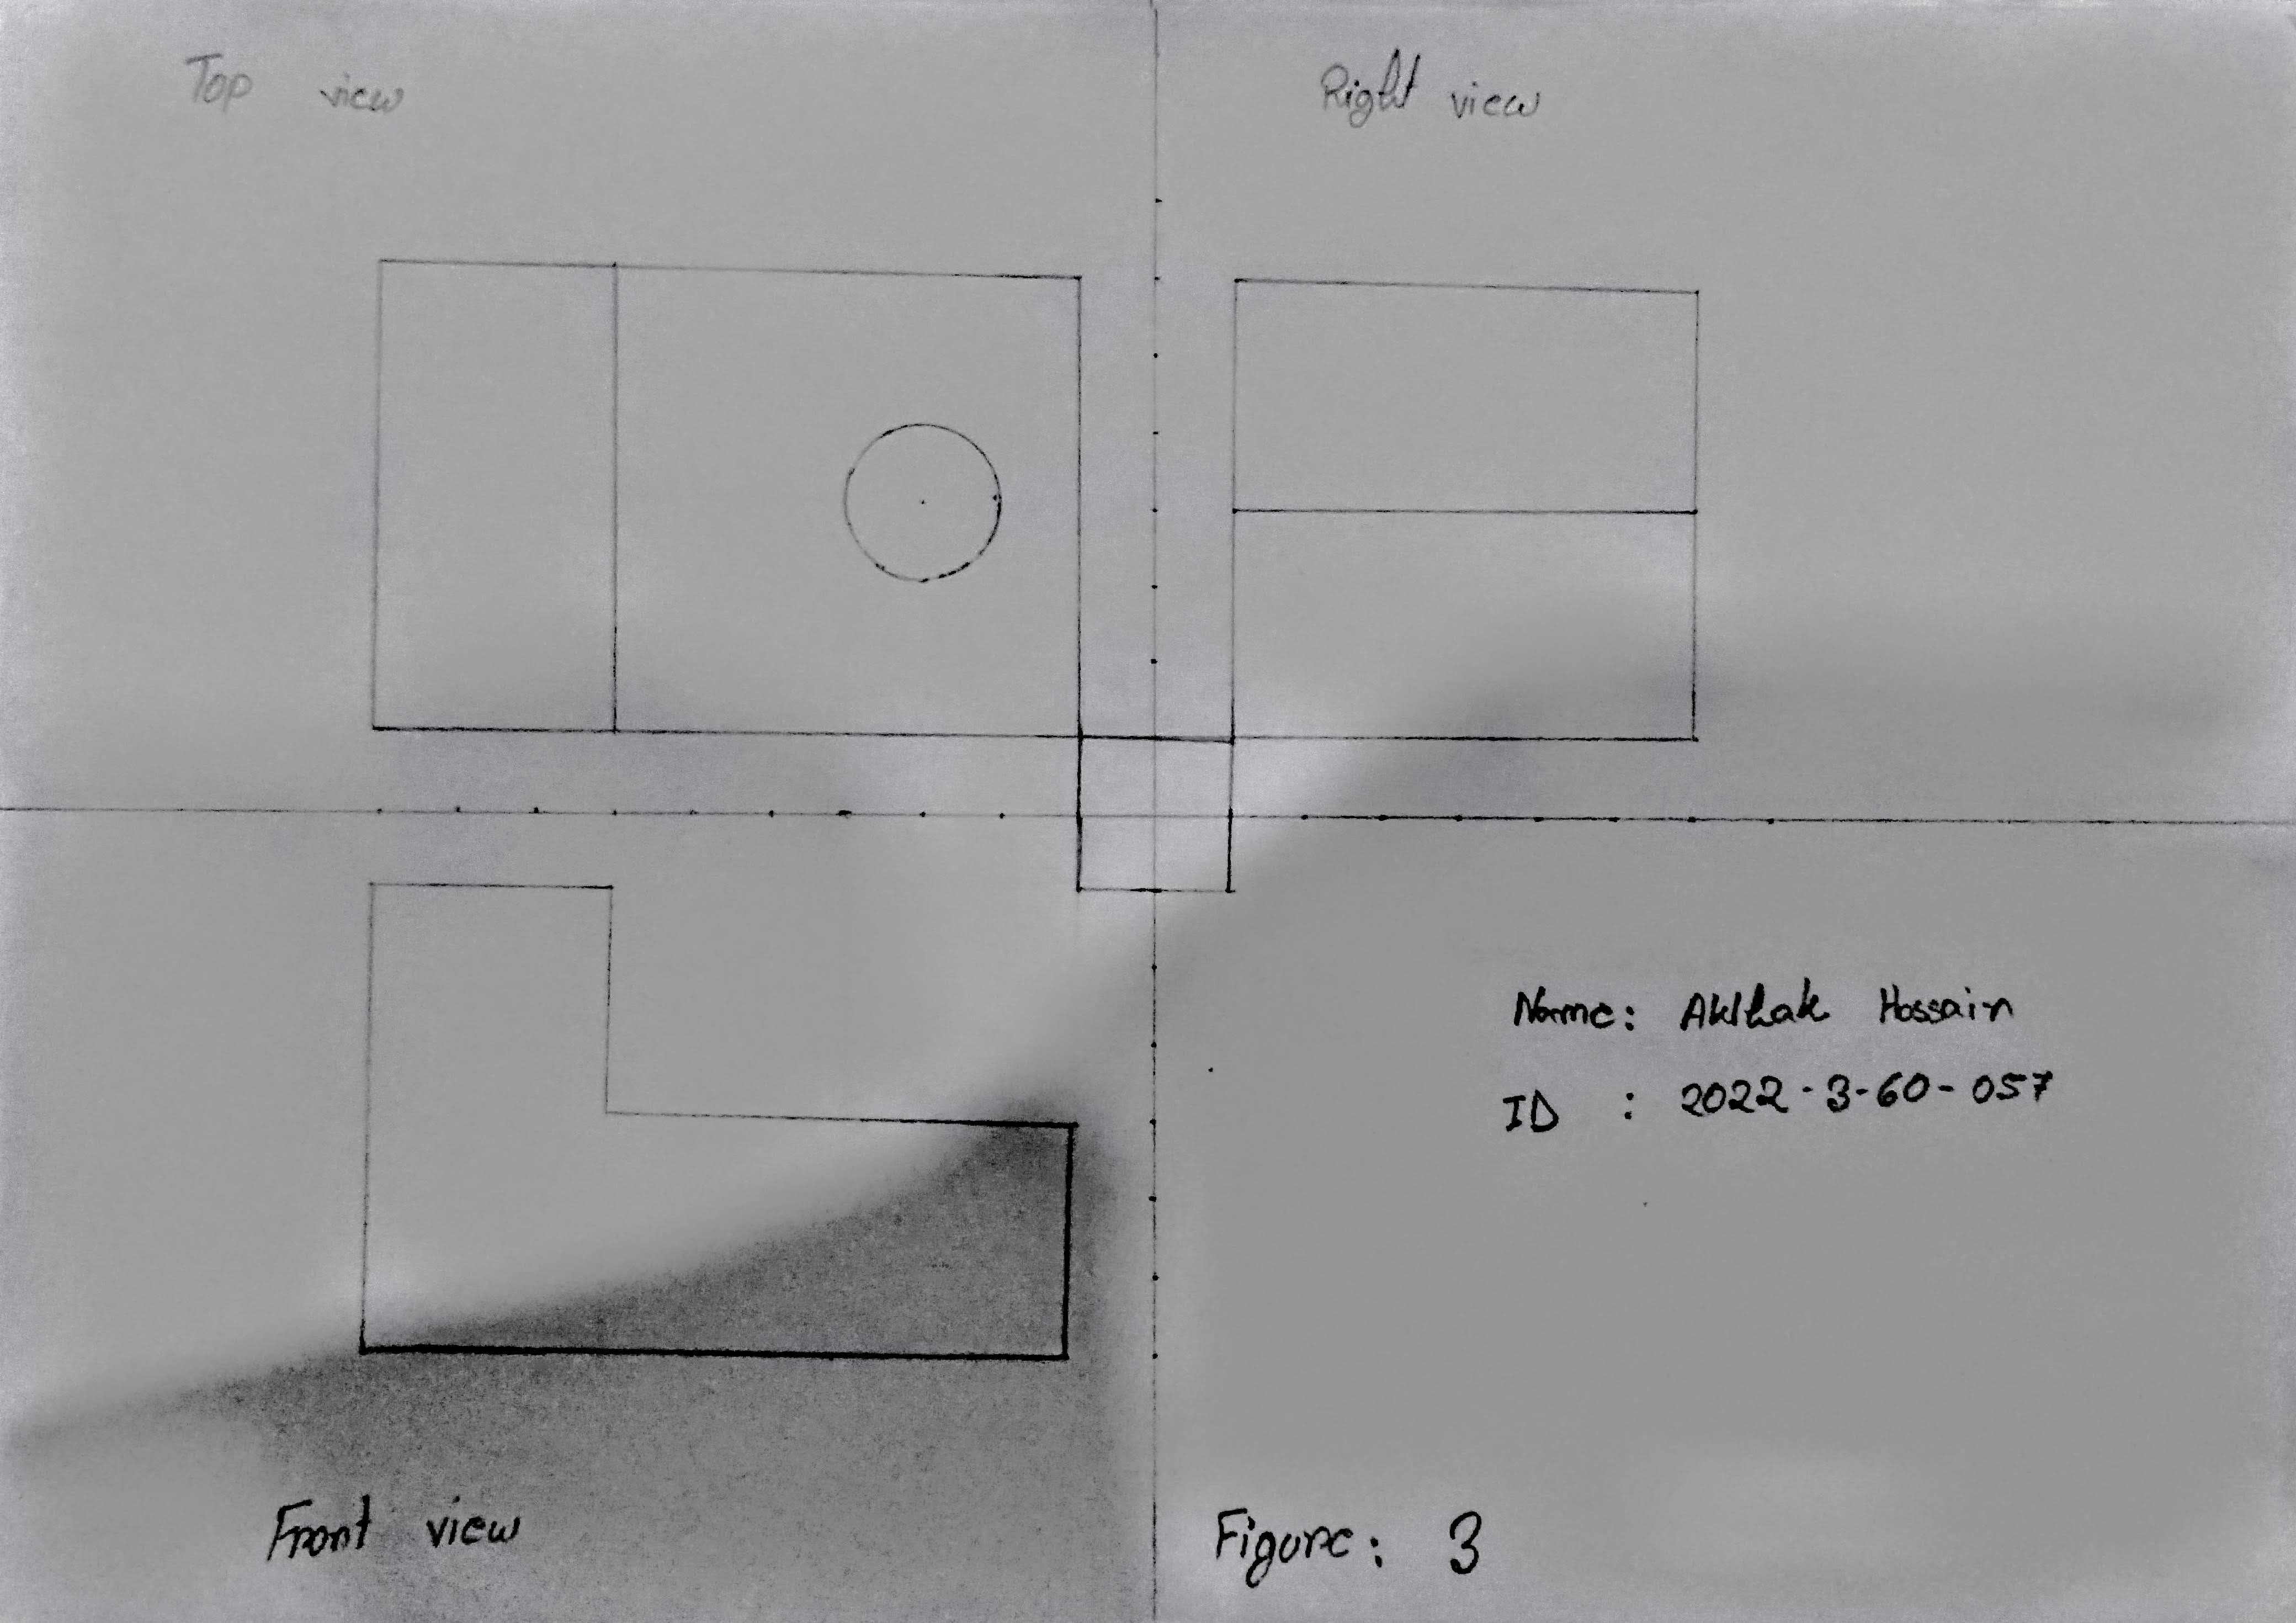 Top view
Right view
Name: Akthak Hossain
ID : 2022-3-60-057
Front view
Figure: 3